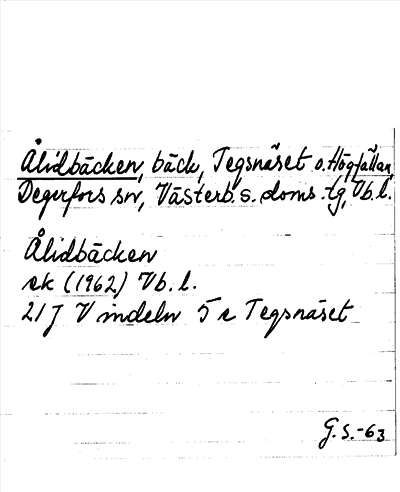 Ålidbäcken, bäck, Tegsnäset o. Högfällan,
Degerfors sn, Västerb. s. doms. tg, Vb. l.
Ålidbäcken
ek (1962) Vb. l.
21 J Vindeln 5 e Tegsnäset
G. S. -63